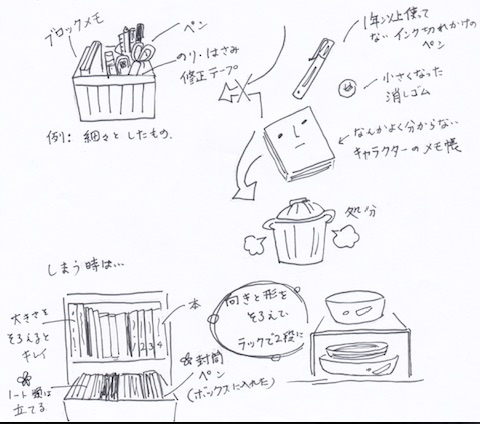 ブロックメモ
ペン
のり・はさみ
修正テープ
例: 細々としたもの.
1年以上使って
ない インク切れかけの
ペン
小さくなった
消しゴム
なんかよく分からない
キャラクターのメモ帳
処分
しまう時は…
大きさを
そろえると
キレイ
本
1 2 3 4
ノート類は
立てる
封筒
ペン
(ボックスに入れた)
向きと形を
そろえて
ラックで2段に